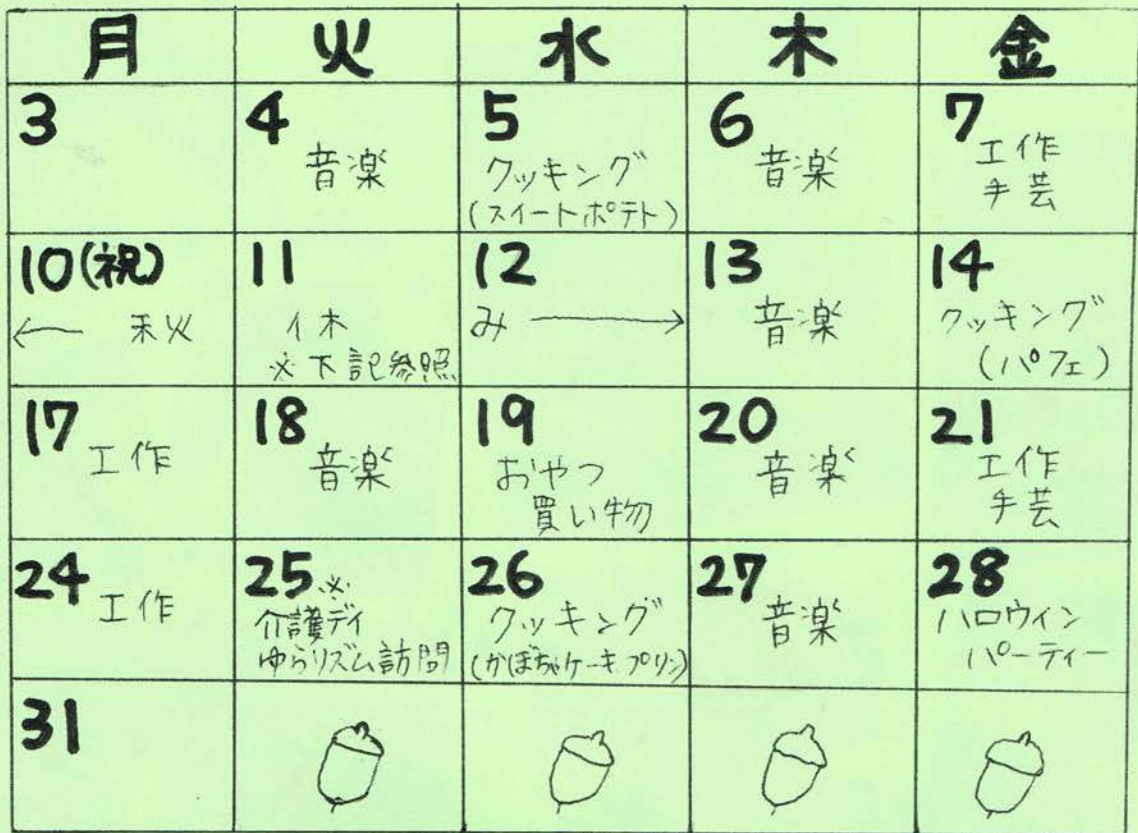 月 火 水 木 金
3
4
音楽
5
クッキング
(スイートポテト)
6
音楽
7
工作
手芸
10(祝)
← 秋
11
休
※下記参照
12
み →
13
音楽
14
クッキング
(パフェ)
17
工作
18
音楽
19
おやつ
買い物
20
音楽
21
工作
手芸
24
工作
25※
介護デイ
ゆらリズム訪問
26
クッキング
(かぼちゃケーキプリン)
27
音楽
28
ハロウィン
パーティー
31